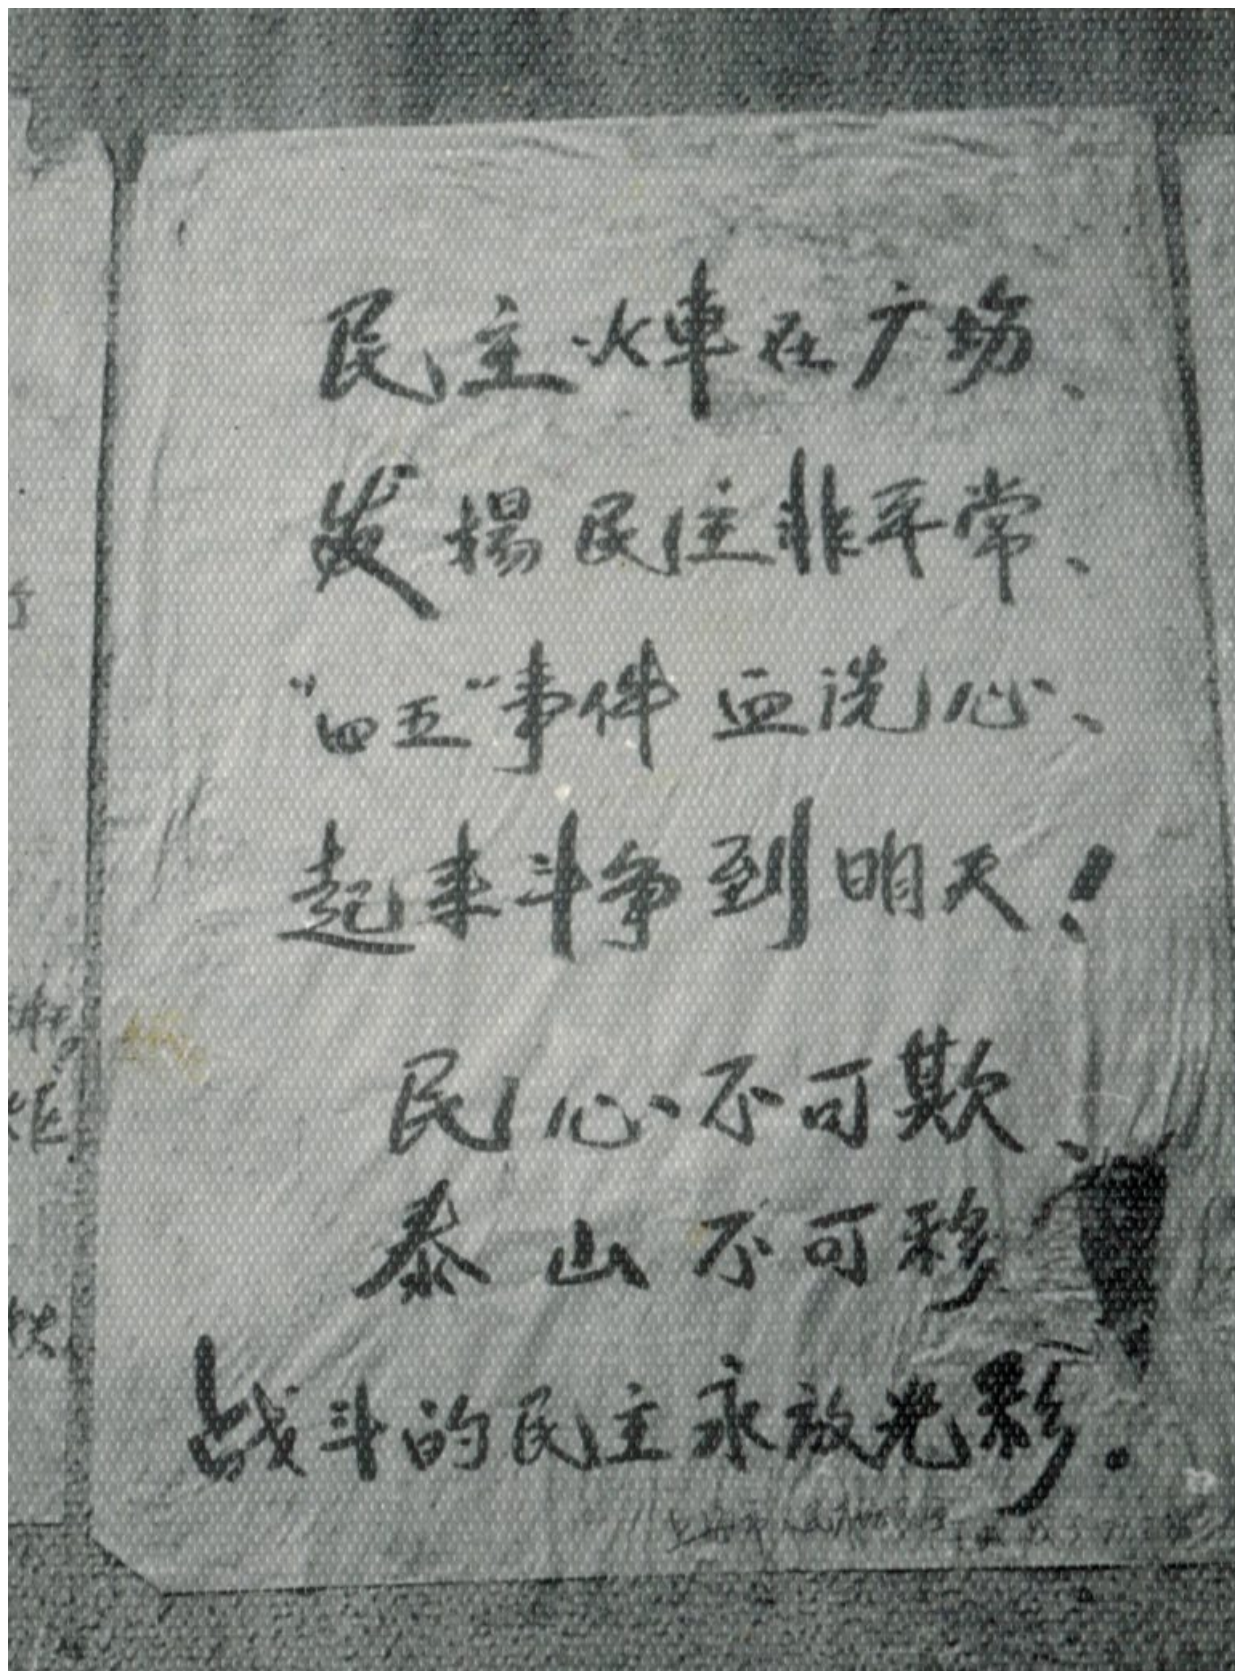 民主火車在广场、
发揚民主非平常、
“四五”事件血洗心、
起来斗争到明天！
民心不可欺、
泰山不可移
战斗的民主永放光彩.